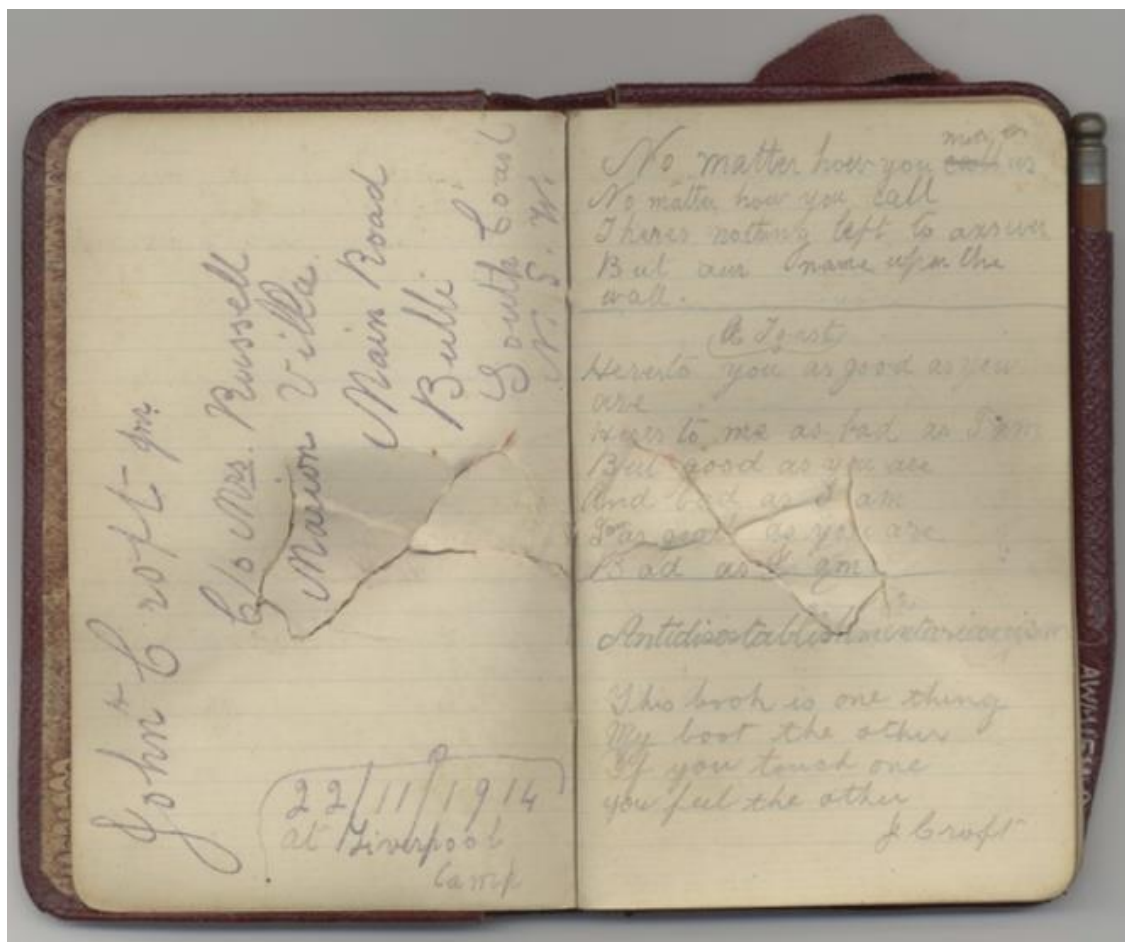 John Croft jnr.
C/o Mrs. Russell
Marion Villa.
Main Road
Bulli.
South Coast
N. S. W.
22/11/1914
at Liverpool
Camp
No matter how you us
No matter how you call
Theres nothing left to answer
But our name upon the
wall.
A Toast
Heresto you as good as you
are
Heres to me as bad as I am
But good as you are
And bad as I am
as you are
Bad as I am
This book is one thing
My boot the other
If you touch one
you feel the other
J Croft